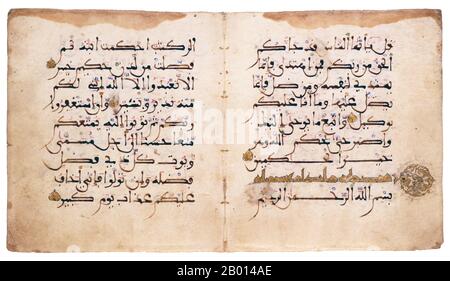 قل يايها الناس قد جاكم
الحق من ربكم فمن اهتدى فإنما
يهتدي لنفسه ومن ضل فإنما
يضل عليها وما أنا عليكم
بوكيل واتبع ما يوحى إليك
واصبر حتى يحكم الله وهو
خير الحكمين
بسم الله الرحمن الرحيم
الر كتب احكمت ايته ثم
فصلت من لدن حكيم خبير
الا تعبدوا الا الله انني لكم
منه نذير وبشير وان استغفروا
ربكم ثم توبوا اليه يمتعكم
متعا حسنا الى اجل مسمى
ويوت كل ذي فضل
فضله وان تولوا فاني اخاف
عليكم عذاب يوم كبير
alamy
Image ID: 2B014AE
www.alamy.com